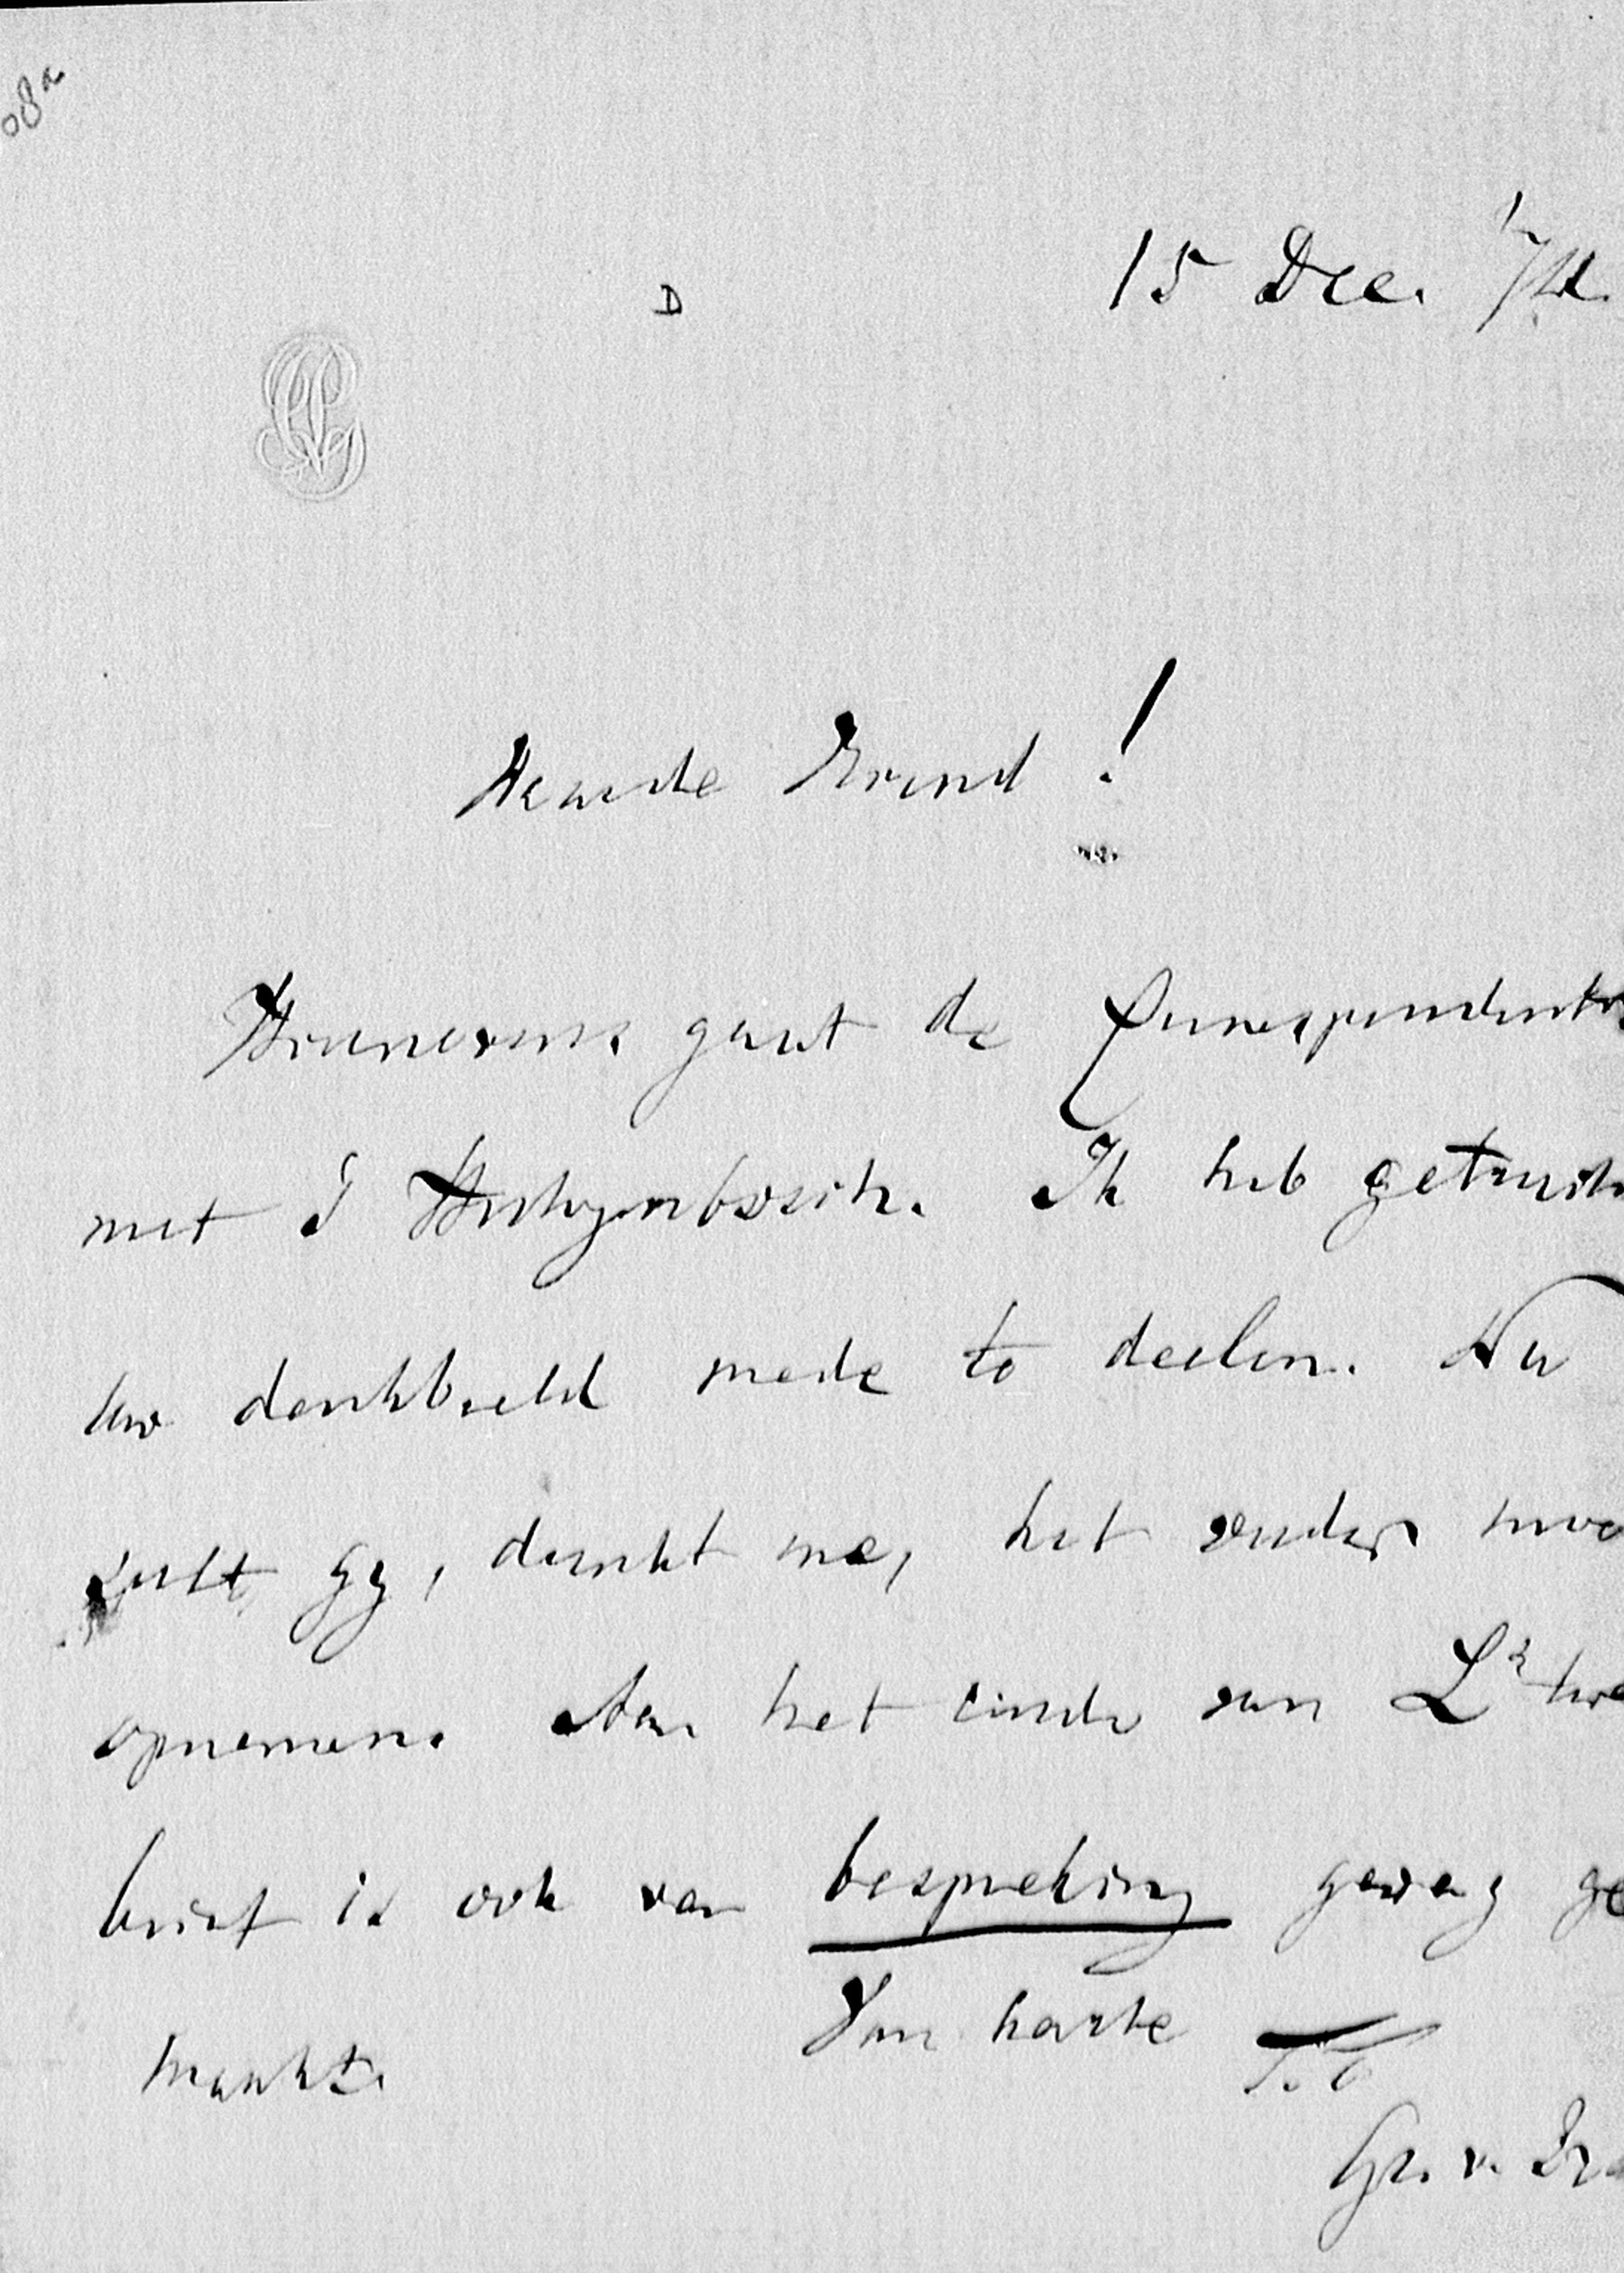 D
15 Dec.
Waarde Vriend!
Hiernevens gaat de Correspondentie
met Ik heb getracht
Uw denkbeeld mede te deelen. Nu
zult Gij, dunkt me, het verder
opnemen. Aan het einde van
brief is ook van bespreking gewag ge
maakt. Van harte T.T.
Gr. v. Pr